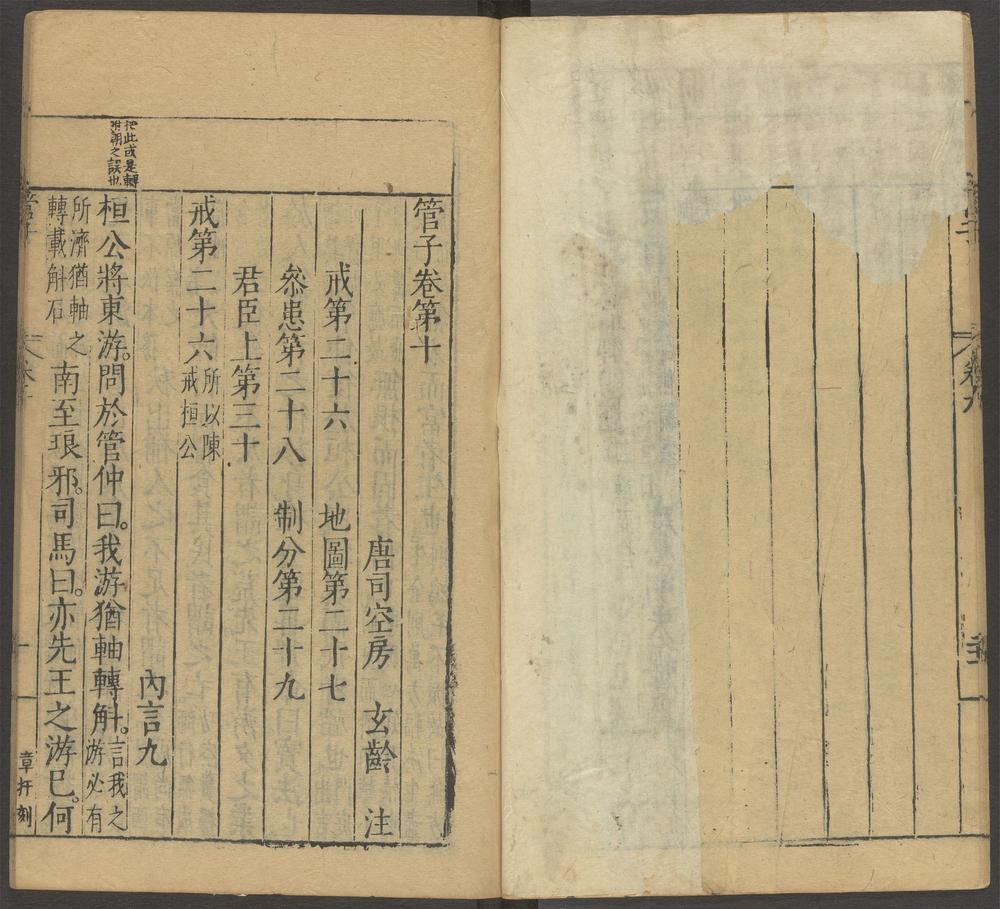 卷九
管子卷第十
唐司空房 玄齡 注
戒第二十六 地圖第二十七
叅患第二十八 制分第二十九
君臣上第三十
內言九
戒第二十六 所以陳戒桓公
桓公將東游。問於管仲曰。我游猶軸轉斛。言我之游必有
所濟猶軸之轉載斛石 南至琅邪。司馬曰。亦先王之游已。何
此或是轉
附朝之誤也
章扞刻